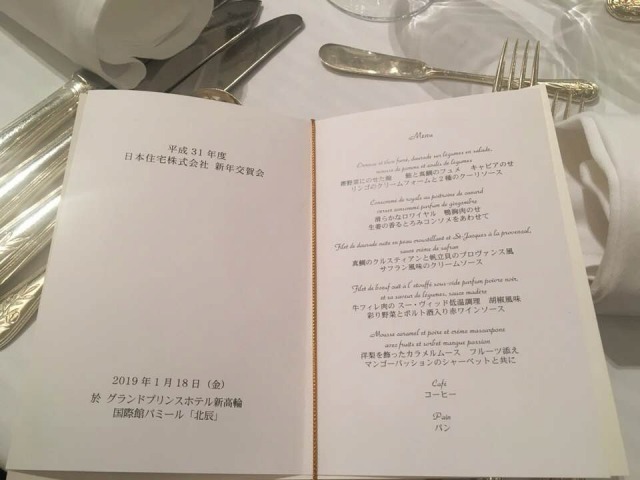 平成31年度
日本住宅株式会社 新年交賀会
2019年1月18日（金）
於 グランドプリンスホテル新高輪
国際館パミール「北辰」
Menu
リンゴのクリームフォームと2種のクーリソース
Consommé de royale au poitrine de canard
滑らかなロワイヤル 鴨胸肉のせ
生姜の香るとろみコンソメをあわせて
Filet de daurade cuits en peau croustillant et St-Jacques à la provençal,
sauce crème de safran
真鯛のクルスティアンと帆立貝のプロヴァンス風
サフラン風味のクリームソース
Filet de bœuf cuit à l'étouffé sous vide parfum poivre noir,
et sa saveur de légumes, sauce madère
牛フィレ肉の スー・ヴィッド低温調理 胡椒風味
彩り野菜とポルト酒入り赤ワインソース
Mousse caramel et poire et crème mascarpone
avec fruits et sorbet mangue passion
洋梨を飾ったカラメルムース フルーツ添え
マンゴーパッションのシャーベットと共に
Café
コーヒー
Pain
パン